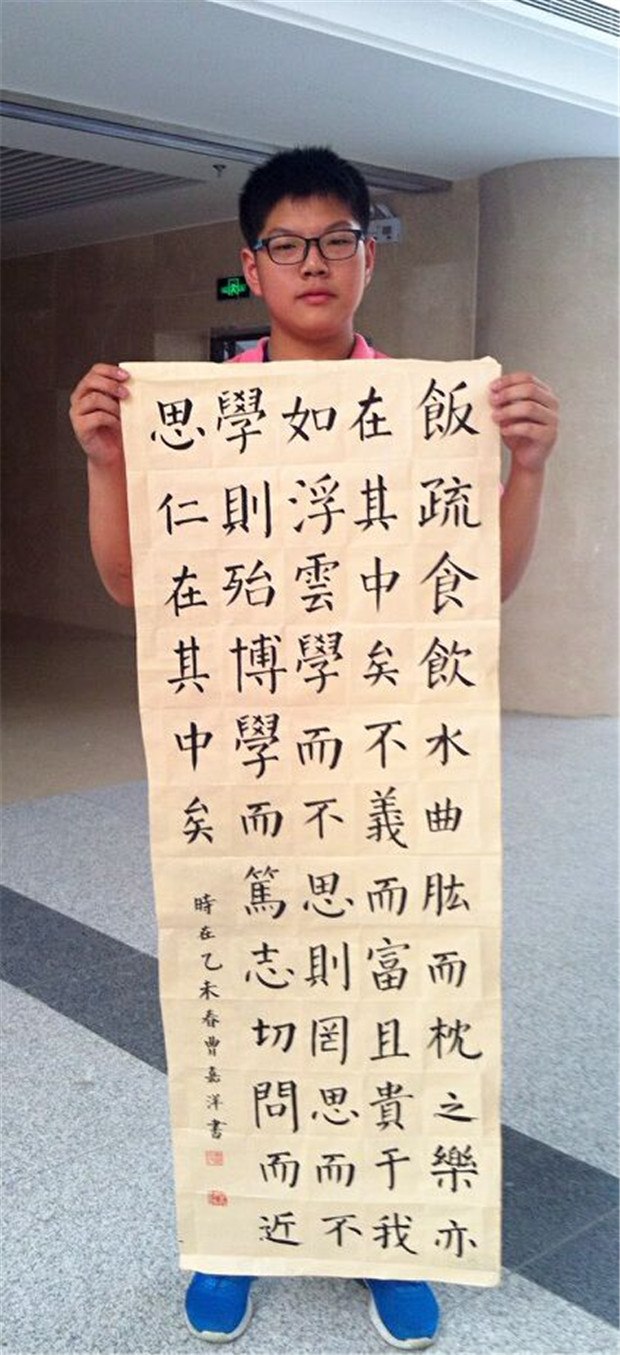 飯疏食飲水曲肱而枕之樂亦
在其中矣不義而富且貴于我
如浮雲學而不思則罔思而不
學則殆博學而篤志切問而近
思仁在其中矣
時在乙未春曹嘉洋書